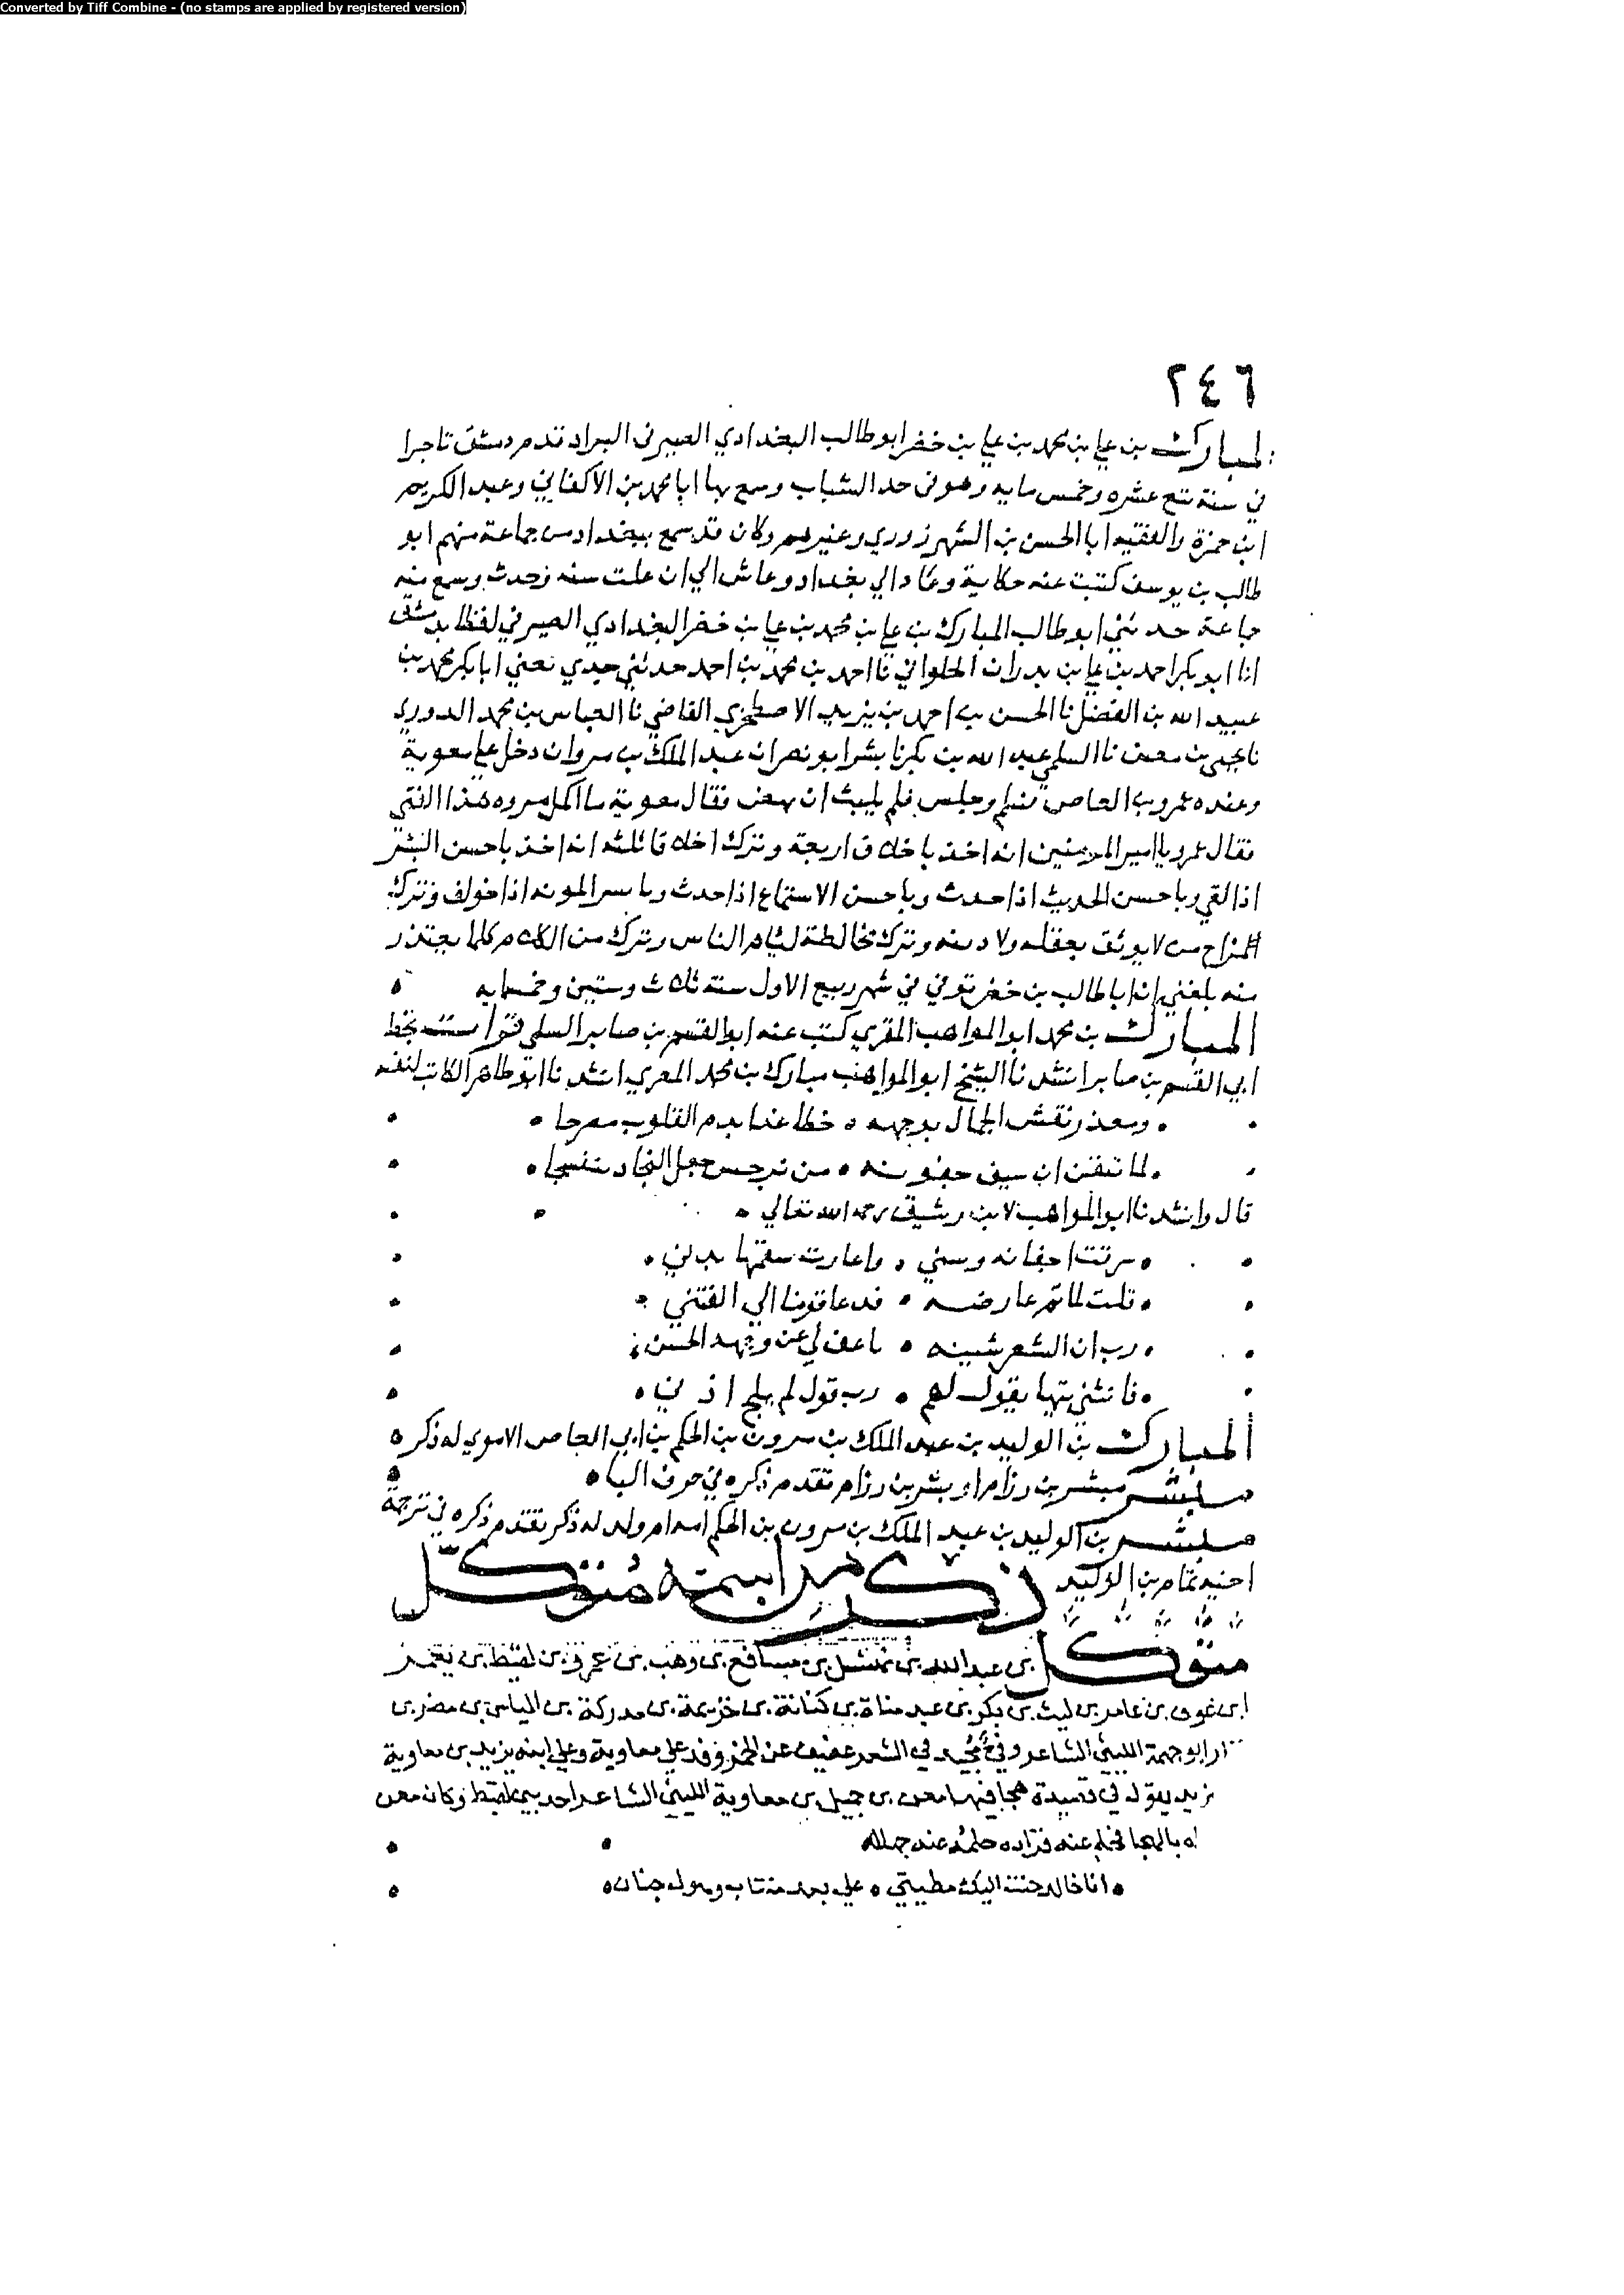 Converted by Tiff Combine - (no stamps are applied by registered version)
٢٤٦
المبارك بن علي بن محمد بن علي بن خضر ابو طالب البغدادي الصيرفي البزاد قدم دمشق تاجرا
في سنة تسع عشره وخمس مايه وهو في حد الشباب وسمع بها ابا محمد بن الاكفاني وعبد الكريم
ابن حمزة والفقيه ابا الحسن بن الشهرزوري وغيرهم وكان قد سمع ببغداد من جماعة منهم ابو
طالب بن يوسف كتبت عنه حكاية وعاد الي بغداد وعاش الي ان علت سنه وحدث وسمع منه
جماعة حدثني ابو طالب المبارك بن علي بن محمد بن علي بن خضر البغدادي الصيرفي لفظا بدمشق
انا ابو بكر احمد بن علي بن بدران الحلواني نا احمد بن محمد بن احمد حدثني جدي يعني ابا بكر محمد بن
عبيد الله بن الفضل نا الحسن بن احمد بن يزيد الاصطخري القاضي نا العباس بن محمد الدوري
نا يحيى بن معين نا السلمي عبد الله بن بكر نا بشر ابو نصر ان عبد الملك بن مروان دخل علي معوية
وعنده عمرو بن العاص فسلم وجلس فلم يلبث ان نهض فقال معوية ما اكمل مروه هذا الفتي
فقال عمرو يا امير المومنين انه اخذ باخلاق اربعة وترك اخلاقا ثلثه انه اخذ باحسن البشر
اذا لقي وباحسن الحديث اذا حدث وباحسن الاستماع اذا حدث وبايسر المونه اذا خولف وترك
المزاح من لا يوثق بعقله ولا دينه وترك مخالطة ليام الناس وترك من الكلام كلما يعتذر
منه بلغني ان ابا طالب بن خضر توفي في شهر ربيع الاول سنة ثلاث وستين وخمسمايه
المبارك بن محمد ابو المواهب المقري كتب عنه ابو القسم بن صابر السلمي قرات بخط
ابي القسم بن صابر انشدنا الشيخ ابو المواهب مبارك بن محمد المعري انشدنا ابو طاهر الكاتب لنفسه
ومعذر نقش الجمال بوجهه خطا غدا بدم القلوب مضرجا
لما تيقن ان سيف جفونه من نرجس جعل النجاد بنفسجا
قال وانشدنا ابو المواهب لابن رشيق رحمه الله تعالي
سرقت اجفانه وسني واعارت سقمها بدني
قلت لما تم عارضه قد عا قومنا الي الفتني
رب ان الشعر شينه ما عفي لي عن وجهه الحسن
فانثني تيها يقول لهم رب قول لم يلج اذني
المبارك بن الوليد بن عبد الملك بن مرون بن الحكم بن ابي العاص الاموي له ذكر
مبشر مبشر بن رزام او بشر بن رزام تقدم ذكره في حرف الباء
مبشر بن الوليد بن عبد الملك بن مرون بن الحكم امه ام ولد له ذكر تقدم ذكره في ترجمة
اخيه تمام بن الوليد ذكر من اسمه متوكل
متوكل بن عبد الله بن نهشل بن مسافع بن وهب بن عمرو بن لقيط بن يعمر
ابن عوف بن عامر بن ليث بن بكر بن عبد مناة بن كنانة بن خزيمة بن مدركة بن الياس بن مضر بن
ار ابو جهمة الليثي الشاعر وفي مجيد في الشعر عفيف عن الخمر وفد علي معاوية وعلي ابنه يزيد بن معاوية
يزيد يقول في قصيدة هجا فيها معن بن جميل بن معاوية الليثي الشاعر احد بني لقيط وكان معن
له بالهجا فحلم عنه فزاده حلمه عنه جهله
انا خالد حنت اليك مطيتي علي بعد منتاب وهول جنان